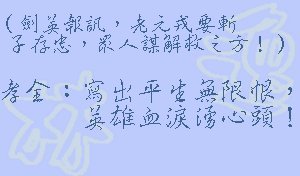 (劍英報訊，老元戎要斬
子存忠，眾人謀解救之方！)
孝金：寫出平生無限恨，
英雄血淚湧心頭！